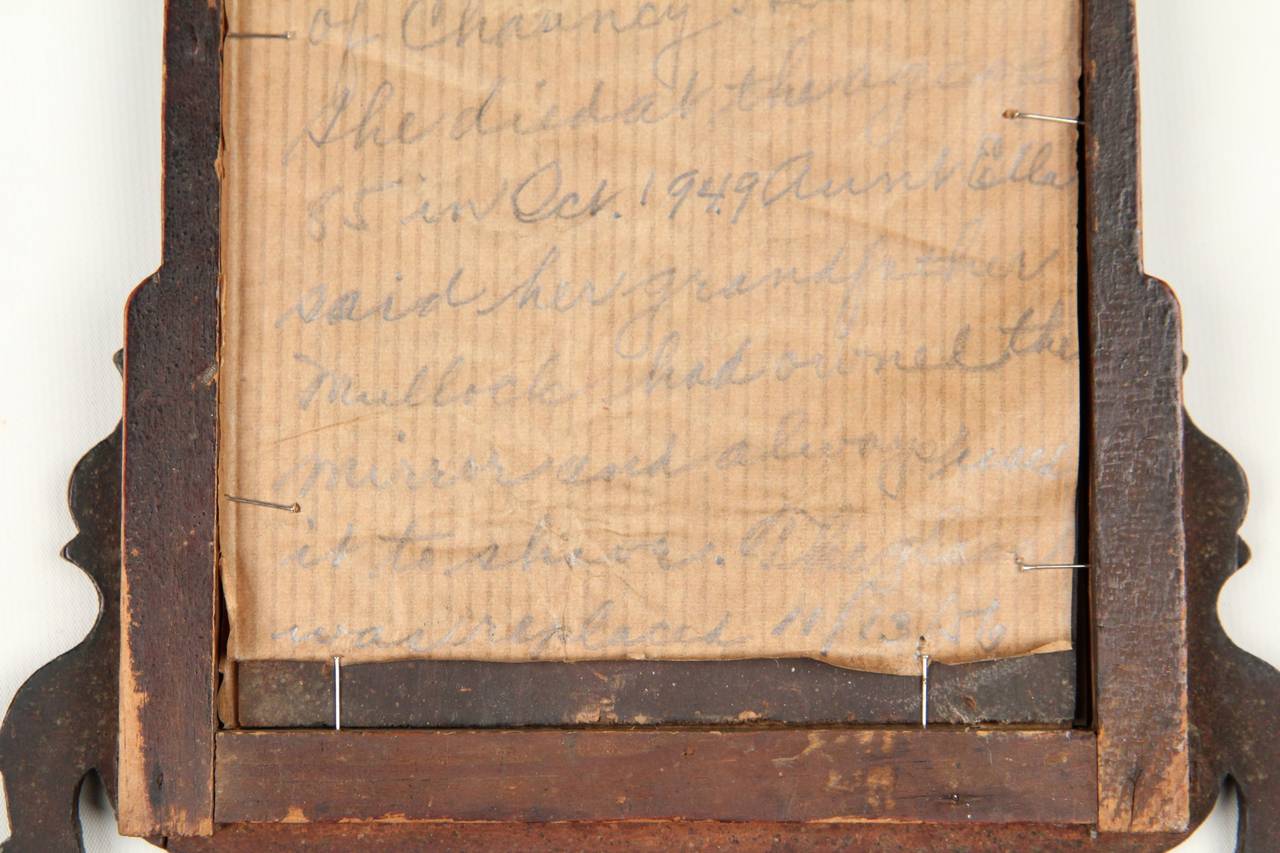 of Chauncy
She died at the age of
85 in Oct. 1949 Aunt Ella
said her grandfather
Mullock had owned the
mirror and always used
it to shave. The glass
was replaced 11/13/56